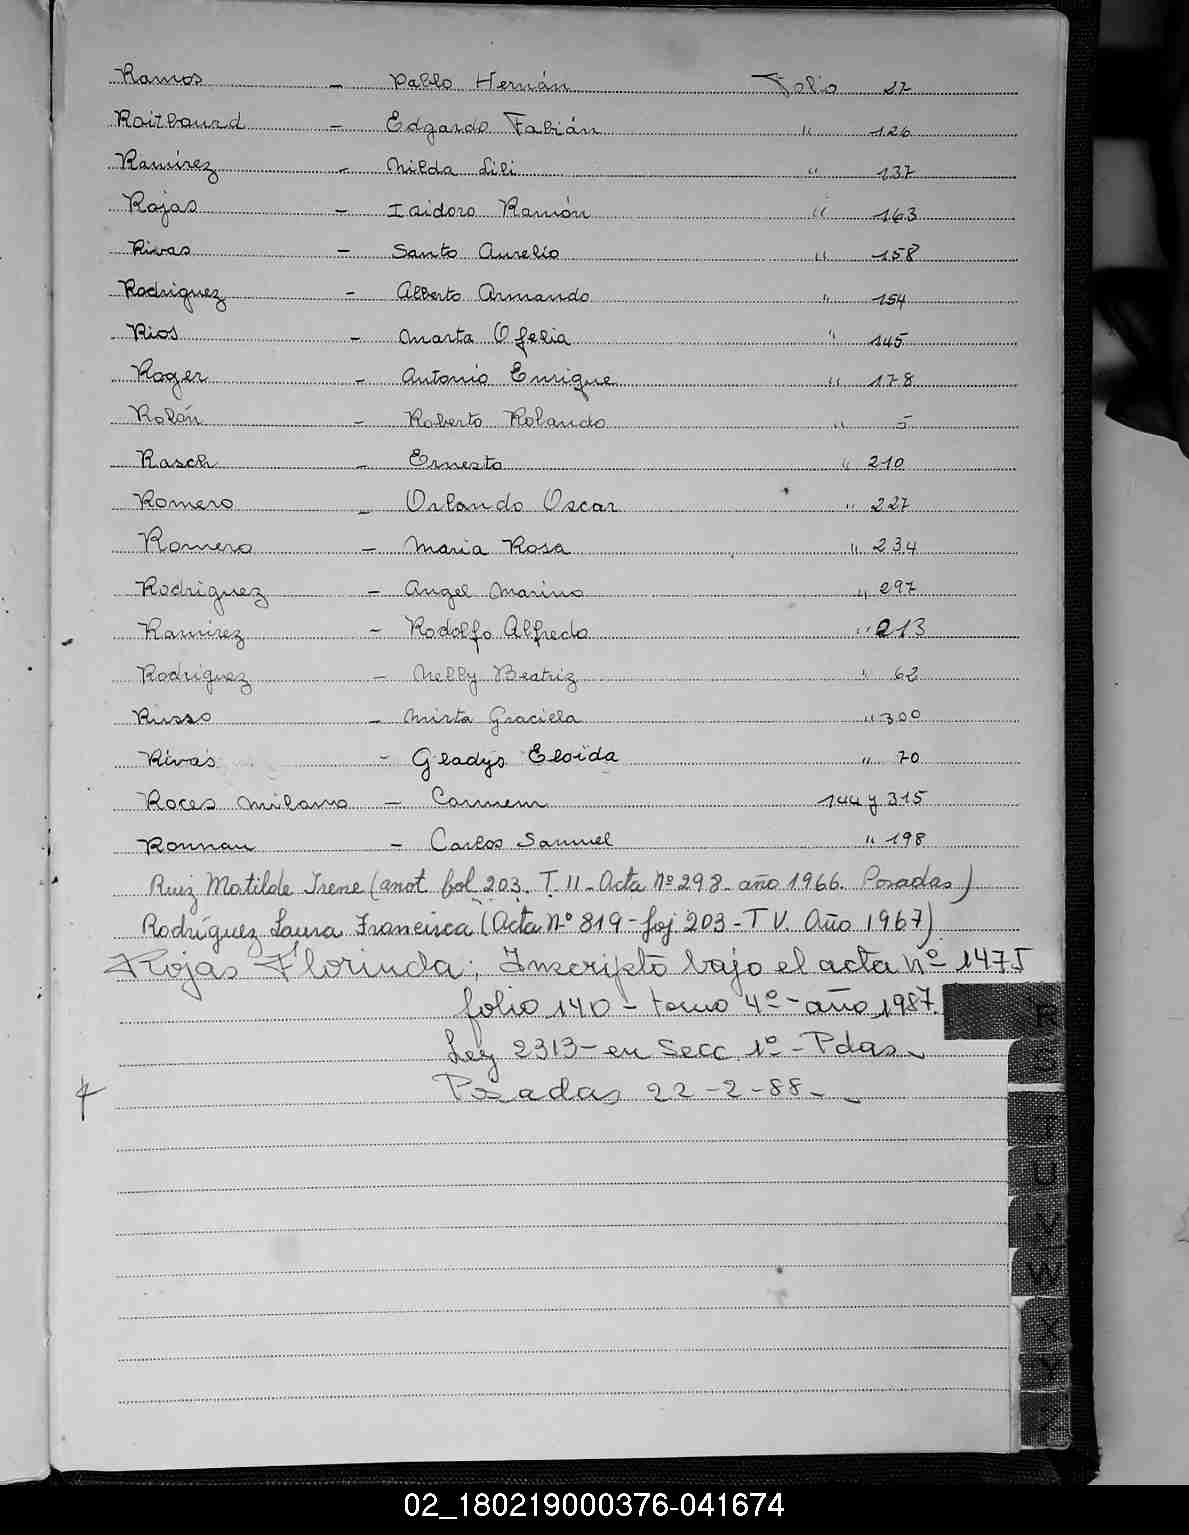 Ramos - Pablo Hernán Folio 27
Roitbourd - Edgardo Fabián " 126
Ramírez - Nilda Lili " 137
Rojas - Isidoro Ramón " 163
Rivas - Santo Aurelio " 158
Rodriguez - Alberto Armando " 154
Rios - Marta Ofelia " 145
Roger - Antonio Enrique " 178
Rolón - Roberto Rolando " 5
Rasch - Ernesto " 210
Romero - Orlando Oscar " 227
Romero - Maria Rosa " 234
Rodriguez - Angel Marino " 297
Ramirez - Rodolfo Alfredo " 213
Rodriguez - Nelly Beatriz " 62
Russo - Mirta Graciela " 300
Rivas - Gladys Eloida " 70
Roces Milano - Carmen 144 y 315
Ronnau - Carlos Samuel " 198
Ruiz Matilde Irene (anot fol 203. T. II - Acta Nº 298 - año 1966. Posadas)
Rodríguez Laura Francisca (Acta Nº 819 - foj. 203 - T V. Año 1967)
Rojas Florinda; Inscripto bajo el acta nº 1475
folio 140 - tomo 4º - año 1987.
Ley 2313 - en Secc 1º - Pdas
Posadas 22-2-88
R
S
T
U
V
W
X
Y
Z
02_180219000376-041674